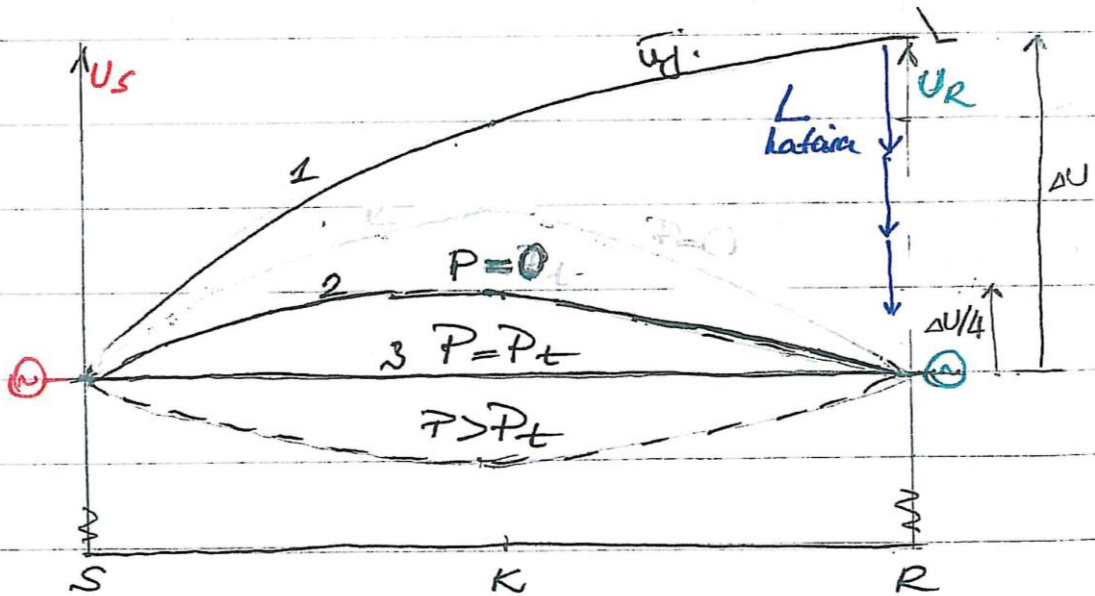 U_S
üj.
L
U_R
L
hatása
ΔU
1
P=0
2
ΔU/4
3 P=P_t
~
~
P>P_t
S K R